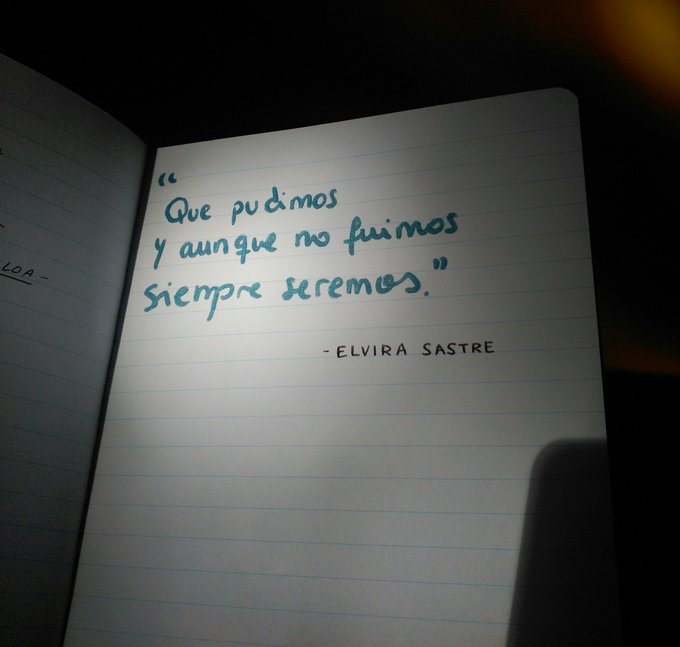 LOA-
“
Que pudimos
y aunque no fuimos
siempre seremos.”
- ELVIRA SASTRE